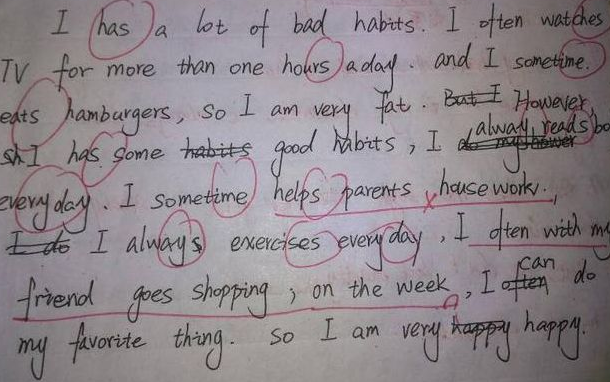 I has a lot of bad habits. I often watches
TV for more than one hours a day. and I sometime.
eats hamburgers, so I am very fat. But I However,
sh I has some habits good habits, I alway reads bo
every day. I sometime helps parents house work.,
I do I always exercises every day, I often with my
friend goes shopping; on the week, I often can do
my favorite thing. so I am very happy happy.